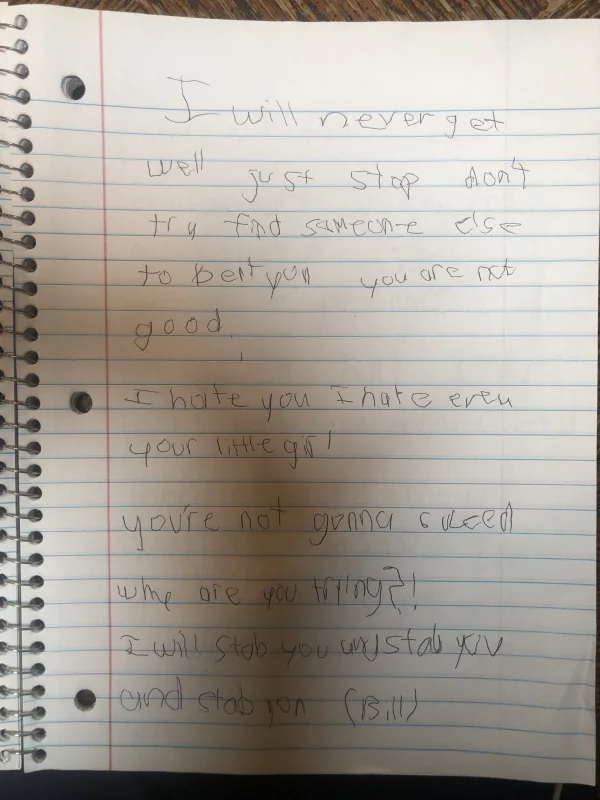 I will never get
well just stop don't
try find someone else
to you you are not
good.
I hate you I hate even
your little girl
you're not gonna succeed
why are you trying?!
I will stab you and stab you
and stab you (Bill)